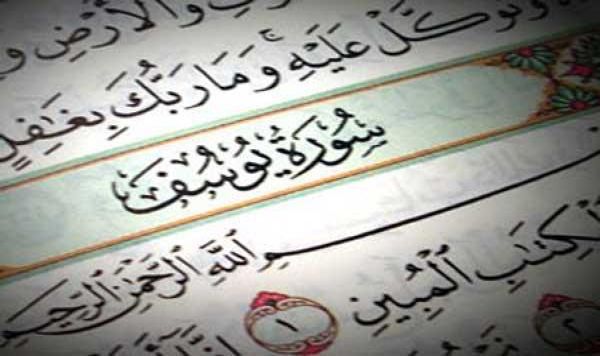 وَالْأَرْضِ
وَتَوَكَّلْ عَلَيْهِ وَمَا رَبُّكَ بِغَٰفِلٍ
سُورَةُ يُوسُفَ
بِسْمِ اللَّهِ الرَّحْمَٰنِ الرَّحِيمِ
الْكِتَابِ الْمُبِينِ ١